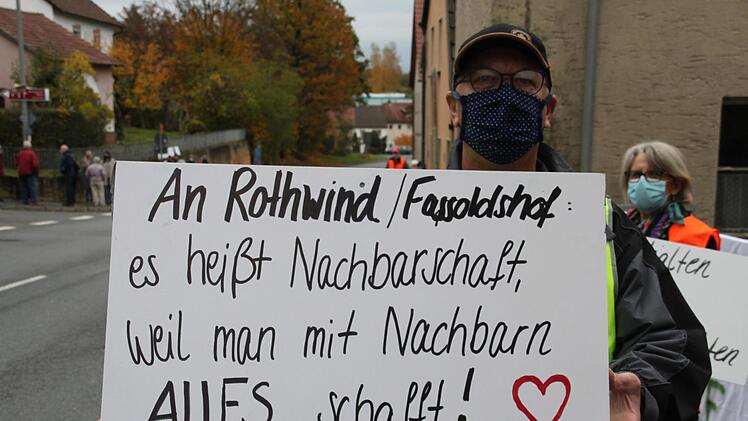 An Rothwind / Fassoldshof:
es heißt Nachbarschaft,
weil man mit Nachbarn
ALLES schafft!
alten